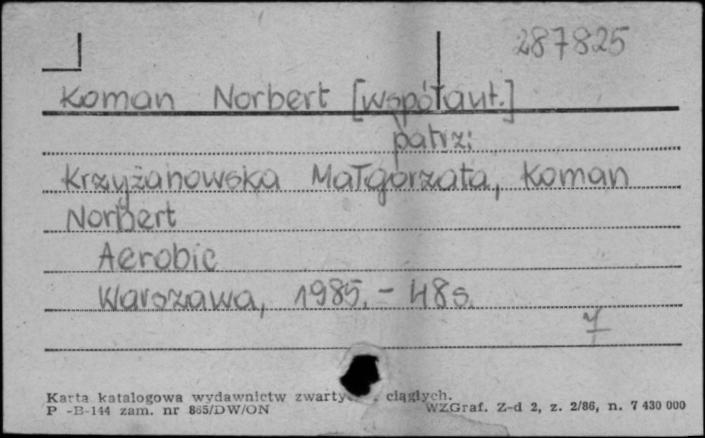 287825
Koman Norbert [współaut.]
patrz:
Krzyżanowska Małgorzata, Koman
Norbert
Aerobic
Warszawa, 1985. - 48s.
Karta katalogowa wydawnictw ciągłych.
P -B-144 zam. nr 865/DW/ON WZGraf. Z-d 2, z. 2/86, n. 7 430 000